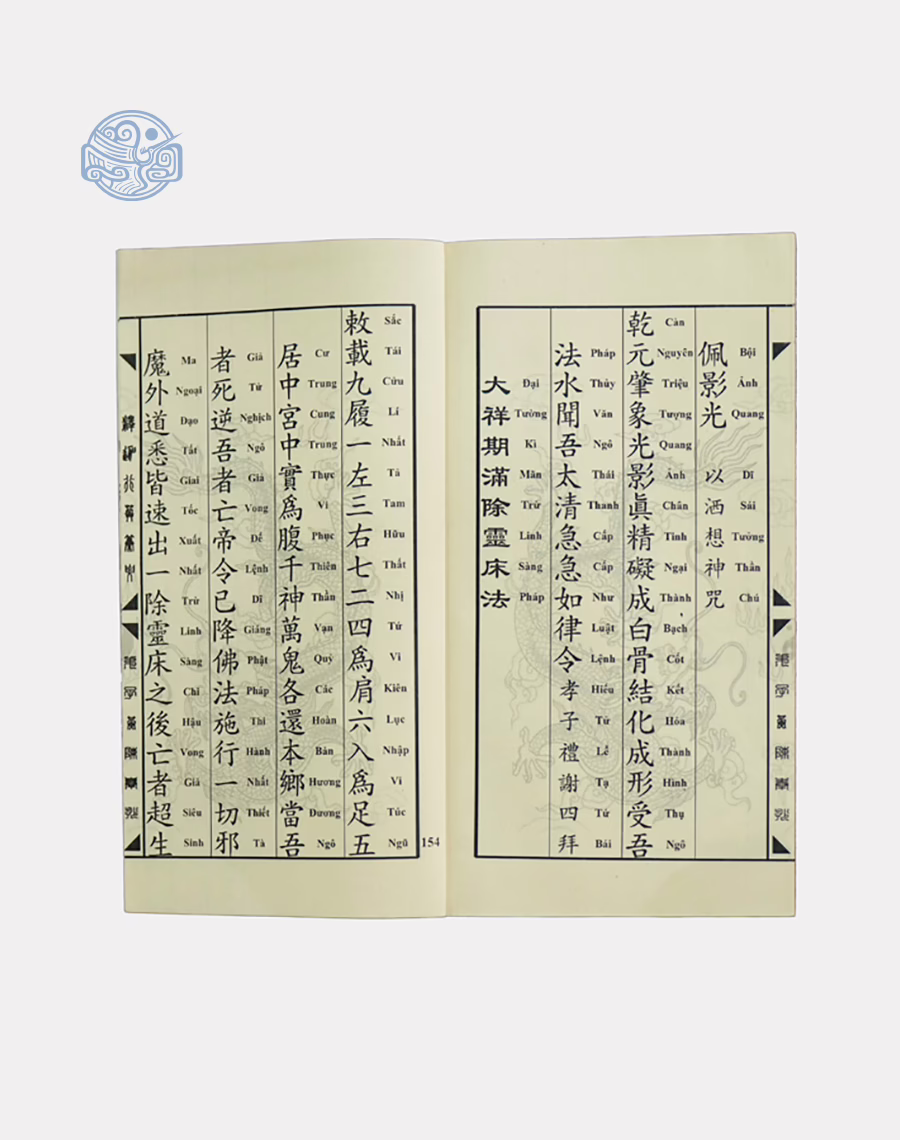 佩影光 以洒想神咒
Bội Ảnh Quang Dĩ Sái Tưởng Thần Chú
乾元肇象光影眞精礙成白骨結化成形受吾
Càn Nguyên Triệu Tượng Quang Ảnh Chân Tinh Ngại Thành Bạch Cốt Kết Hóa Thành Hình Thụ Ngô
法水聞吾太清急急如律令孝子禮謝四拜
Pháp Thủy Văn Ngô Thái Thanh Cấp Cấp Như Luật Lệnh Hiếu Tử Lễ Tạ Tứ Bái
大祥期滿除靈床法
Đại Tường Kì Mãn Trừ Linh Sàng Pháp
敕載九履一左三右七二四爲肩六入爲足五
Sắc Tái Cửu Lí Nhất Tả Tam Hữu Thất Nhị Tứ Vi Kiên Lục Nhập Vi Túc Ngũ
居中宮中實爲腹千神萬鬼各還本鄉當吾
Cư Trung Cung Trung Thực Vi Phục Thiên Thần Vạn Quỷ Các Hoàn Bản Hương Đương Ngô
者死逆吾者亡帝令已降佛法施行一切邪
Giả Tử Nghịch Ngô Giả Vong Đế Lệnh Dĩ Giáng Phật Pháp Thi Hành Nhất Thiết Tà
魔外道悉皆速出一除靈床之後亡者超生
Ma Ngoại Đạo Tất Giai Tốc Xuất Nhất Trừ Linh Sàng Chi Hậu Vong Giả Siêu Sinh
154